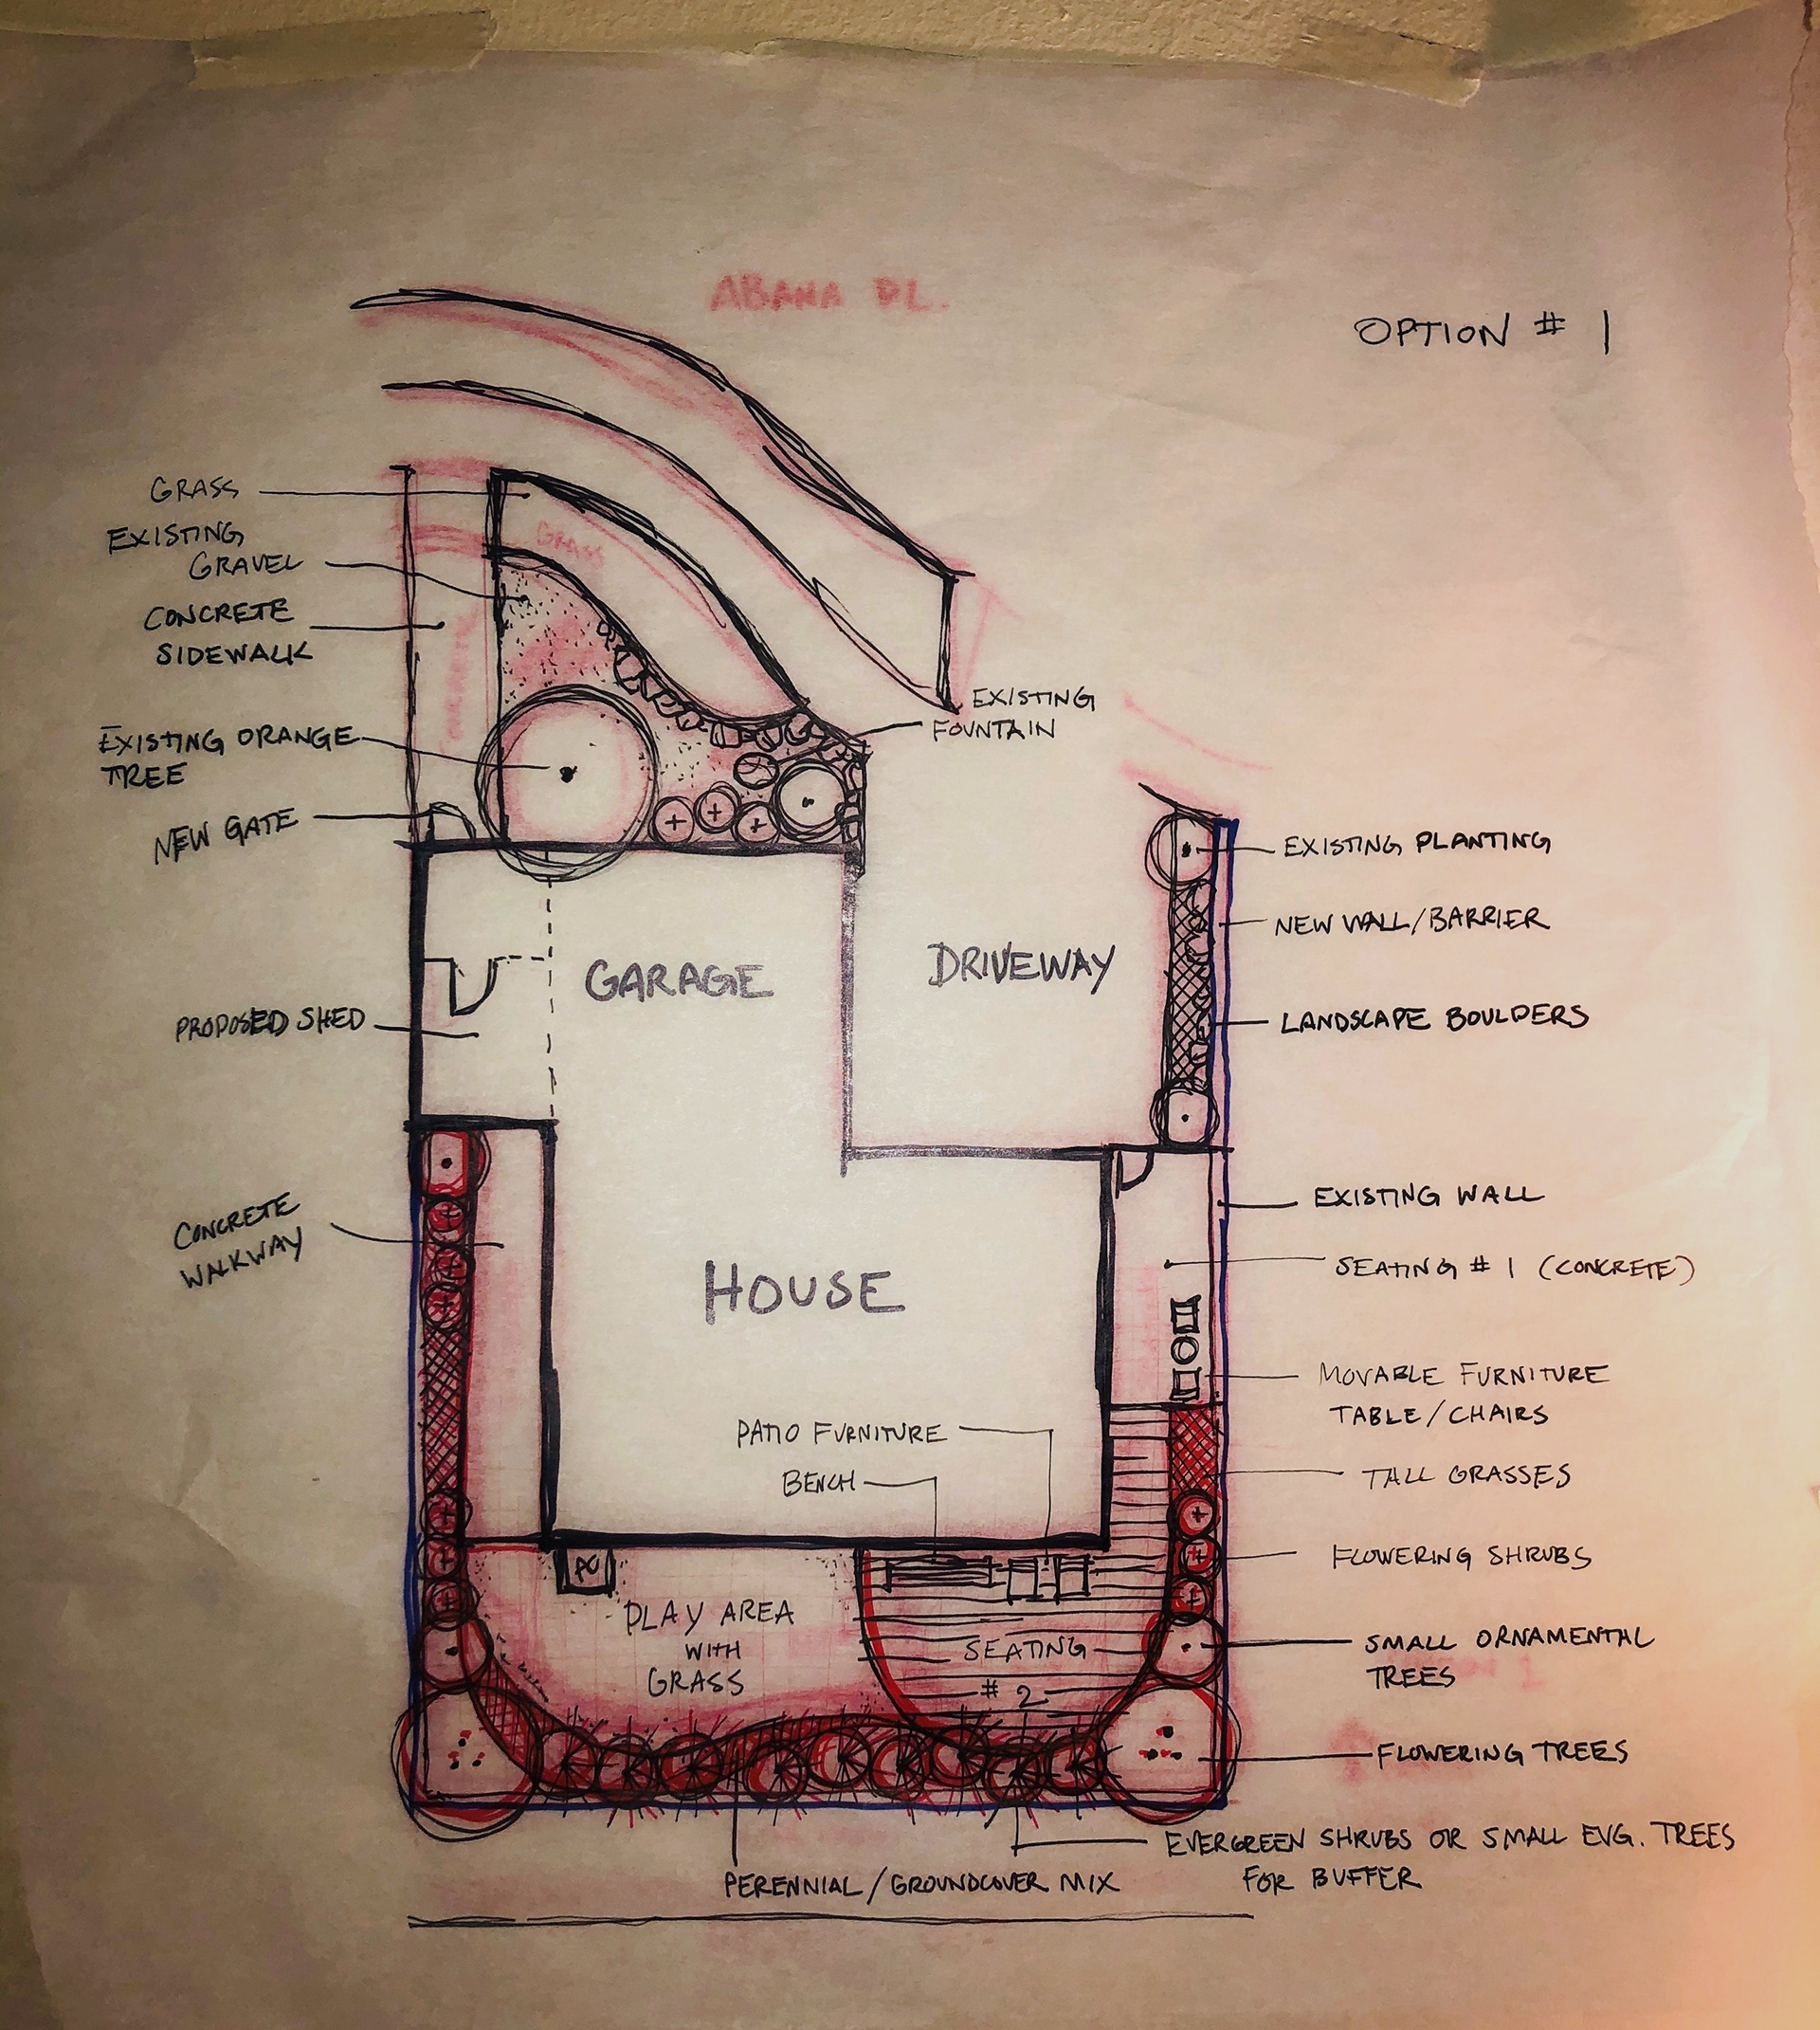 ABANA PL.
OPTION # 1
GRASS
EXISTING
GRAVEL
CONCRETE
SIDEWALK
EXISTING ORANGE
TREE
NEW GATE
PROPOSED SHED
CONCRETE
WALKWAY
GRASS
EXISTING
FOUNTAIN
GARAGE
DRIVEWAY
HOUSE
PATIO FURNITURE
BENCH
AC
PLAY AREA
WITH
GRASS
SEATING
# 2
EXISTING PLANTING
NEW WALL/BARRIER
LANDSCAPE BOULDERS
EXISTING WALL
SEATING # 1 (CONCRETE)
MOVABLE FURNITURE
TABLE/CHAIRS
TALL GRASSES
FLOWERING SHRUBS
SMALL ORNAMENTAL
TREES
FLOWERING TREES
EVERGREEN SHRUBS OR SMALL EVG. TREES
FOR BUFFER
PERENNIAL/GROUNDCOVER MIX